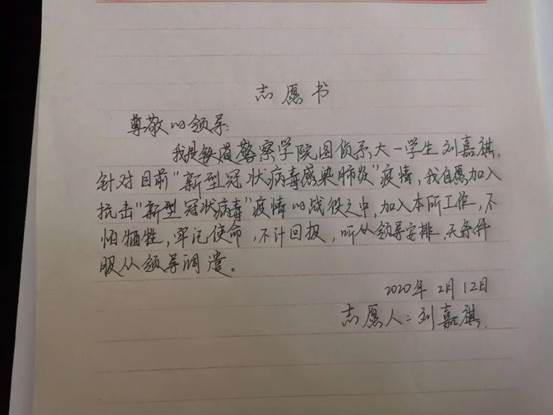 志愿书
尊敬的领导:
我是铁道警察学院国侦系大一学生刘嘉祺,
针对目前"新型冠状病毒感染肺炎"疫情,我自愿加入
抗击"新型冠状病毒"疫情的战役之中,加入本所工作,不
怕牺牲,牢记使命,不计回报,听从领导安排,无条件
服从领导调遣。
2020年2月12日
志愿人:刘嘉祺